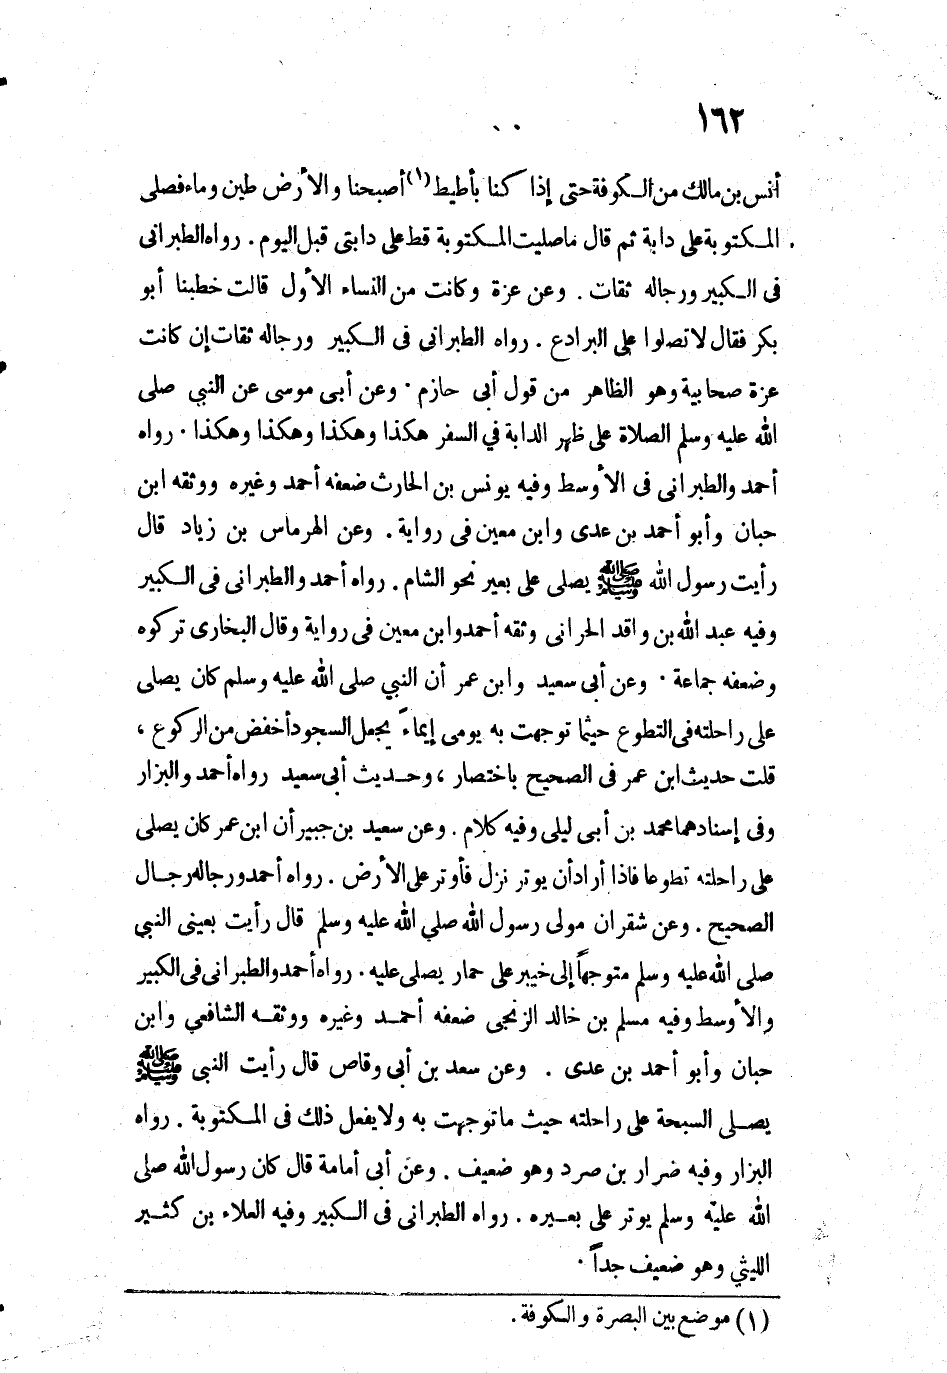 ١٦٢
أنس بن مالك من الكوفة حتى إذا كنا بأطيط (١) أصبحنا والأرض طين وماء فصلى
المكتوبة على دابة ثم قال ماصليت المكتوبة قط على دابتى قبل اليوم . رواه الطبرانى
فى الكبير ورجاله ثقات . وعن عزة وكانت من النساء الأول قالت خطبنا أبو
بكر فقال لا تصلوا على البرادع . رواه الطبرانى فى الكبير ورجاله ثقات إن كانت
عزة صحابية وهو الظاهر من قول أبى حازم . وعن أبى موسى عن النبي صلى
الله عليه وسلم الصلاة على ظهر الدابة في السفر هكذا وهكذا وهكذا وهكذا . رواه
أحمد والطبرانى فى الأوسط وفيه يونس بن الحارث ضعفه أحمد وغيره ووثقه ابن
حبان وأبو أحمد بن عدى وابن معين فى رواية . وعن الهرماس بن زياد قال
رأيت رسول الله ﷺ يصلى على بعير نحو الشام . رواه أحمد والطبرانى فى الكبير
وفيه عبد الله بن واقد الحرانى وثقه أحمد وابن معين فى رواية وقال البخارى تركوه
وضعفه جماعة . وعن أبى سعيد وابن عمر أن النبي صلى الله عليه وسلم كان يصلى
على راحلته فى التطوع حيثما توجهت به يومى إيماءً يجعل السجود أخفض من الركوع ،
قلت حديث ابن عمر فى الصحيح باختصار ، وحديث أبى سعيد رواه أحمد والبزار
وفى إسنادهما محمد بن أبى ليلى وفيه كلام . وعن سعيد بن جبير أن ابن عمر كان يصلى
على راحلته تطوعا فاذا أراد أن يوتر نزل فأوتر على الأرض . رواه أحمد ورجاله رجال
الصحيح . وعن شقران مولى رسول الله صلي الله عليه وسلم قال رأيت بعينى النبي
صلى الله عليه وسلم متوجهاً إلى خيبر على حمار يصلى عليه . رواه أحمد والطبرانى فى الكبير
والأوسط وفيه مسلم بن خالد الزنجى ضعفه أحمد وغيره ووثقه الشافعي وابن
حبان وأبو أحمد بن عدى . وعن سعد بن أبى وقاص قال رأيت النبى ﷺ
يصلى السبحة على راحلته حيث ماتوجهت به ولا يفعل ذلك فى المكتوبة . رواه
البزار وفيه ضرار بن صرد وهو ضعيف . وعن أبى أمامة قال كان رسول الله صلى
الله عليه وسلم يوتر على بعيره . رواه الطبرانى فى الكبير وفيه العلاء بن كثير
الليثي وهو ضعيف جداً .
(١) موضع بين البصرة والكوفة .